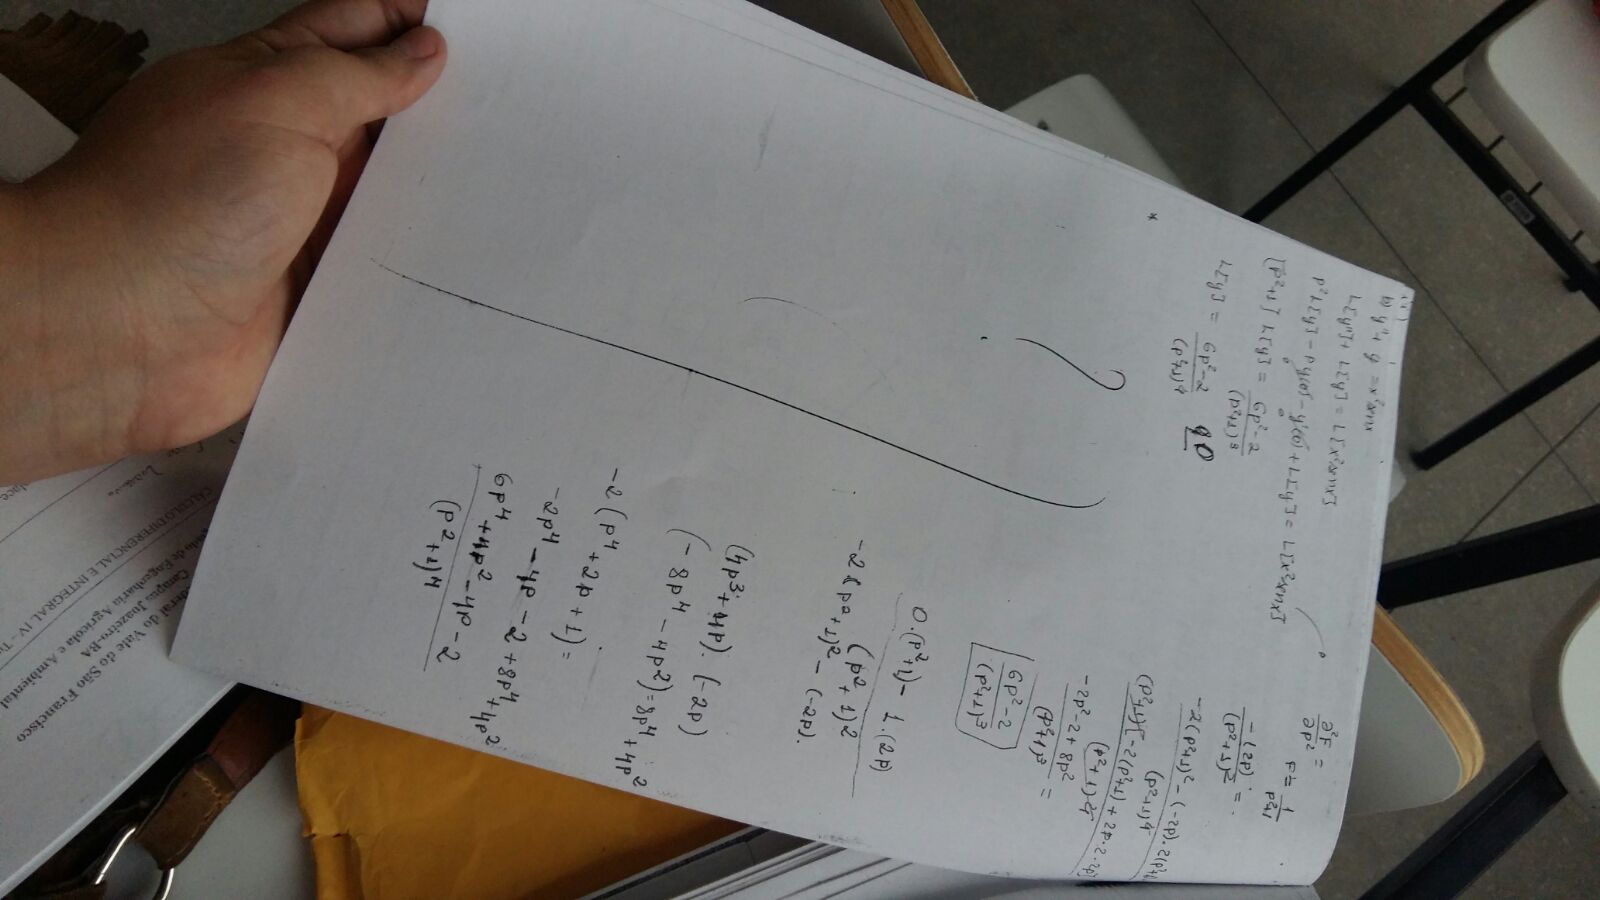 b) y'' + y = x²senx
L[y''] + L[y] = L[x²senx]
p²L[y] - py(0) - y'(0) + L[y] = L[x²senx]
0 0
(p²+1) L[y] = 6p²-2
(p²+1)³
L[y] = 6p²-2
(p²+1)⁴
*
?
∂²F = F = 1
∂p² p²+1
-(2p) =
(p²+1)²
-2(p²+1)² - (-2p).2(p²+1)
(p²+1)⁴
(p²+1)[-2(p²+1) + 2p.2.2p]
(p²+1)⁴
-2p²-2+8p² =
(p²+1)³
6p²-2
(p²+1)³
0.(p²+1) - 1.(2p)
(p²+1)²
-2(p²+1)² - (-2p).
(4p³+4p).(-2p)
(-8p⁴-4p²)=8p⁴+4p²
-2(p⁴+2p+1)=
-2p⁴-4p-2+8p⁴+4p²
6p⁴+4p²-4p-2
(p²+1)⁴
do Vale do São Francisco
Campus Juazeiro-BA
de Engenharia Agrícola e Ambiental
CÁLCULO DIFERENCIAL E INTEGRAL IV